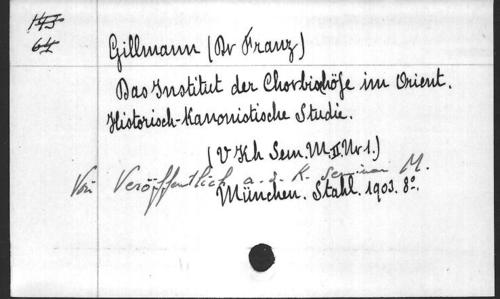 64
Gillmann (Dr Franz)
Das Institut der Chorbischöfe im Orient.
Historisch-Kanonistische Studie.
(V Kh Sem. M. II Nr 1.)
Veröffentlich a. d. K. Seminar M.
München. Stahl. 1903. 8°.